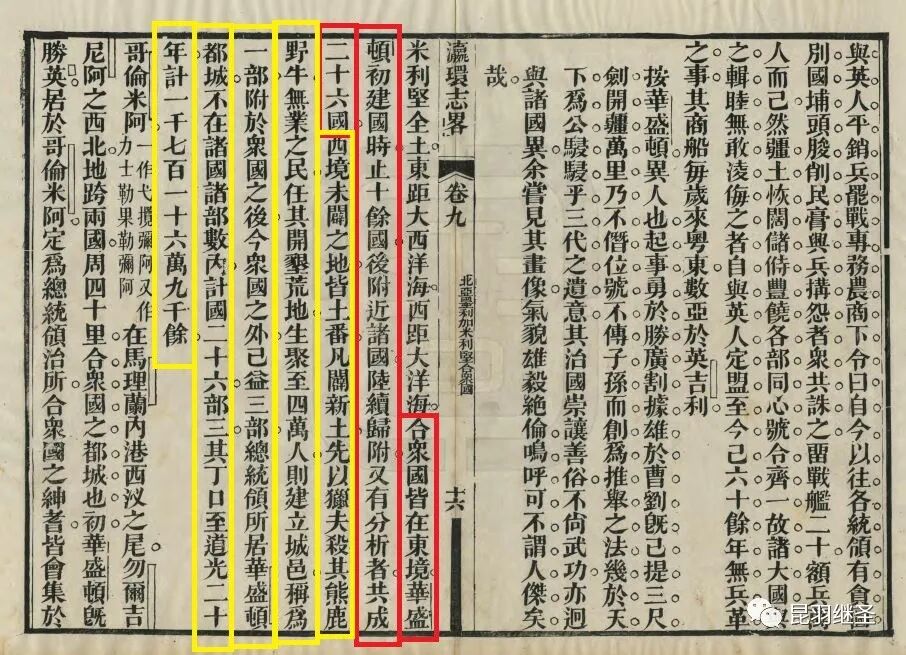 與英人平銷兵罷戰事務農商下令曰自今以往各統領有貪圖
別國埔頭朘削民膏興兵搆怨者衆共誅之畱戰艦二十額兵萬
人而已然疆土恢闊儲偫豐饒各部同心號令齊一故諸大國與
之輯睦無敢淩侮之者自與英人定盟至今已六十餘年無兵革
之事其商船每歲來粵東數亞於英吉利
按華盛頓異人也起事勇於勝廣割據雄於曹劉旣已提三尺
劍開疆萬里乃不僭位號不傳子孫而創爲推舉之法幾於天
下爲公駸駸乎三代之遺意其治國崇讓善俗不尙武功亦迥
與諸國異余嘗見其畫像氣貌雄毅絕倫嗚呼可不謂人傑矣
哉
瀛環志畧 卷九 北亞墨利加米利堅合衆國 十六
米利堅全土東距大西洋海西距大洋海合衆國皆在東境華盛
頓初建國時止十餘國後附近諸國陸續歸附又有分析者共成
二十六國西境未闢之地皆土番凡闢新土先以獵夫殺其熊鹿
野牛無業之民任其開墾荒地生聚至四萬人則建立城邑稱爲
一部附於衆國之後今衆國之外已益三部總統領所居華盛頓
都城不在諸國諸部數內計國二十六部三其丁口至道光二十
年計一千七百一十六萬九千餘
哥倫米阿一作戈攬彌阿又作力士勒果勒彌阿在馬理蘭內港西汊之尾勿爾吉
尼阿之西北地跨兩國周四十里合衆國之都城也初華盛頓旣
勝英居於哥倫米阿定爲總統領治所合衆國之紳耆皆會集於
昆羽继圣